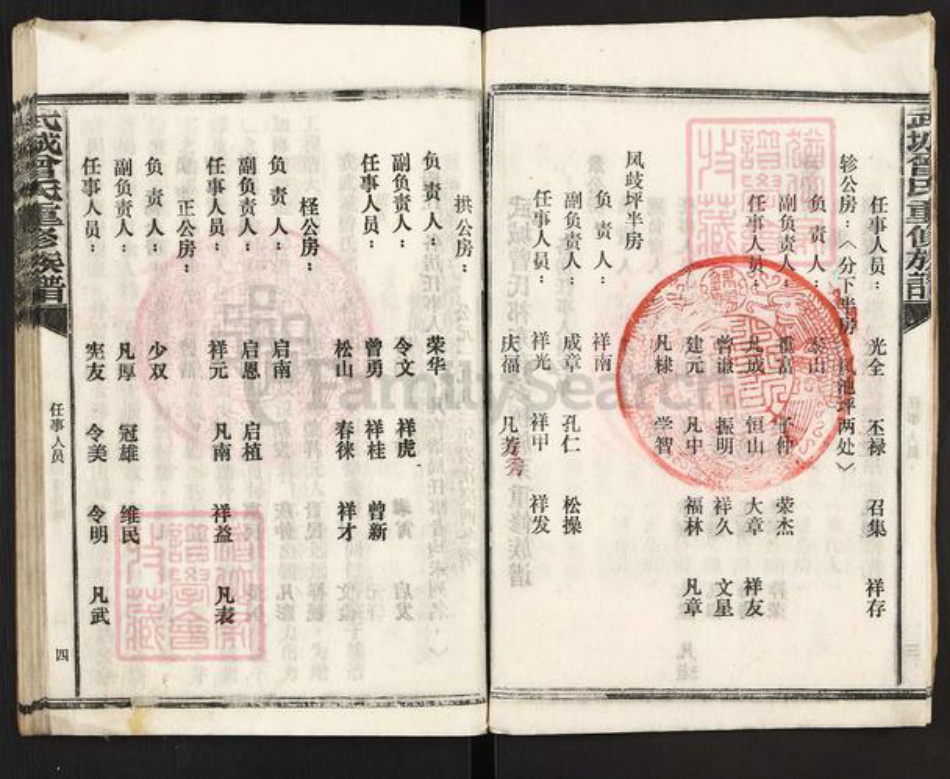 武城曾氏重修族譜
任事人员： 光全 丕禄 召集 祥存
轸公房：（分下半房 凤池坪两处）
负责人： 泰山
副负责人： 子仲 荣杰
任事人员： 凡成 恒山 大章 祥友
曾谦 振明 祥久 文星
建元 凡中 福林 凡章
凡棣 学智
凤歧坪半房
负责人： 祥南
副负责人： 成章 孔仁 松操
任事人员： 祥光 祥甲 祥发
庆福 凡芳
三
拱公房：
负责人： 荣华
副负责人： 令文 祥虎
任事人员： 曾勇 祥桂 曾新
松山 春徕 祥才
柽公房：
负责人： 启南
副负责人： 启恩 启植
任事人员： 祥元 凡南 祥益 凡表
正公房：
负责人： 少双
副负责人： 凡厚 冠雄 维民
任事人员： 宪友 令美 令明 凡武
任事人员
四
武城曾氏重修族譜
FamilySearch